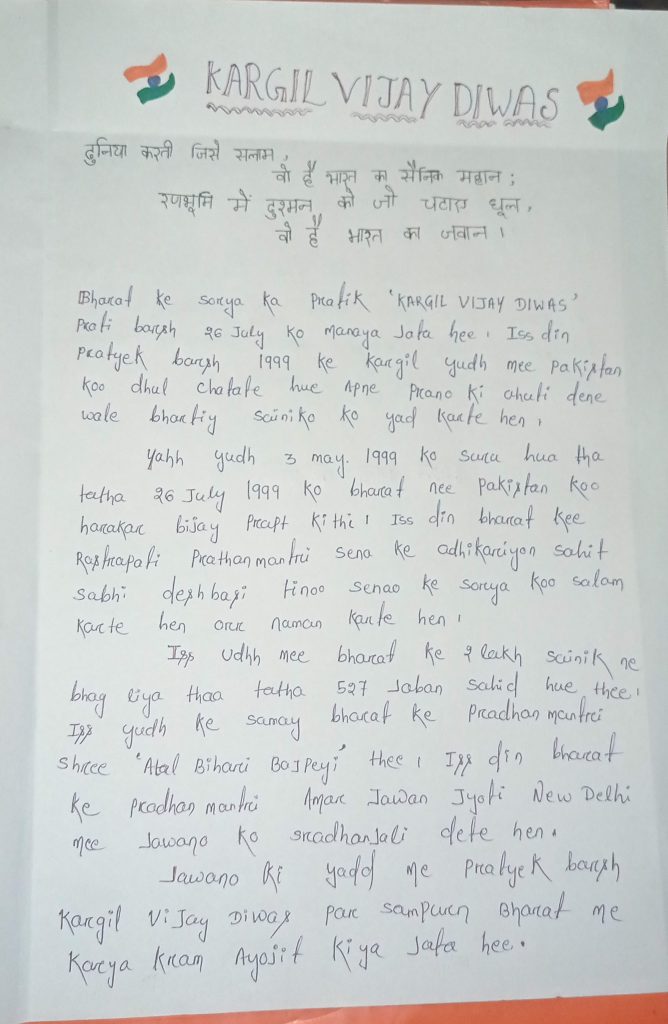 KARGIL VIJAY DIWAS
दुनिया करती जिसे सलाम,
वो है भारत का सैनिक महान;
रणभूमि में दुश्मन को जो चटाए धूल,
वो है भारत का जवान।
Bharat ke sorya ka Pratik 'KARGIL VIJAY DIWAS'
Prati barsh 26 July ko manaya Jata hee। Iss din
Pratyek barsh 1999 ke kargil yudh mee pakistan
koo dhul chatate hue Apne Prano ki ahuti dene
wale bhartiy sainiko ko yad karte hen।
Yahh yudh 3 may. 1999 ko suru hua tha
tatha 26 July 1999 ko bharat nee pakistan koo
harakar bijay Prapt kithi। Iss din bharat kee
Rastrapati Prathanmantri sena ke adhikariyon sahit
sabhi deshbasi tinoo senao ke sorya koo salam
karte hen orr naman karte hen।
Iss Udhh mee bharat ke 2 lakh sainik ne
bhag liya thaa tatha 527 Jaban sahid hue thee।
Iss yudh ke samay bharat ke Pradhan mantri
Shree 'Atal Bihari BaJpeyi' thee। Iss din bharat
ke pradhan mantri Amar Jawan Jyoti New Delhi
mee Jawano ko sradhanJali dete hen.
Jawano ki yadd me Pratyek barsh
Kargil ViJay Diwas par sampurn Bharat me
Karya kram Ayojit kiya Jata hee.